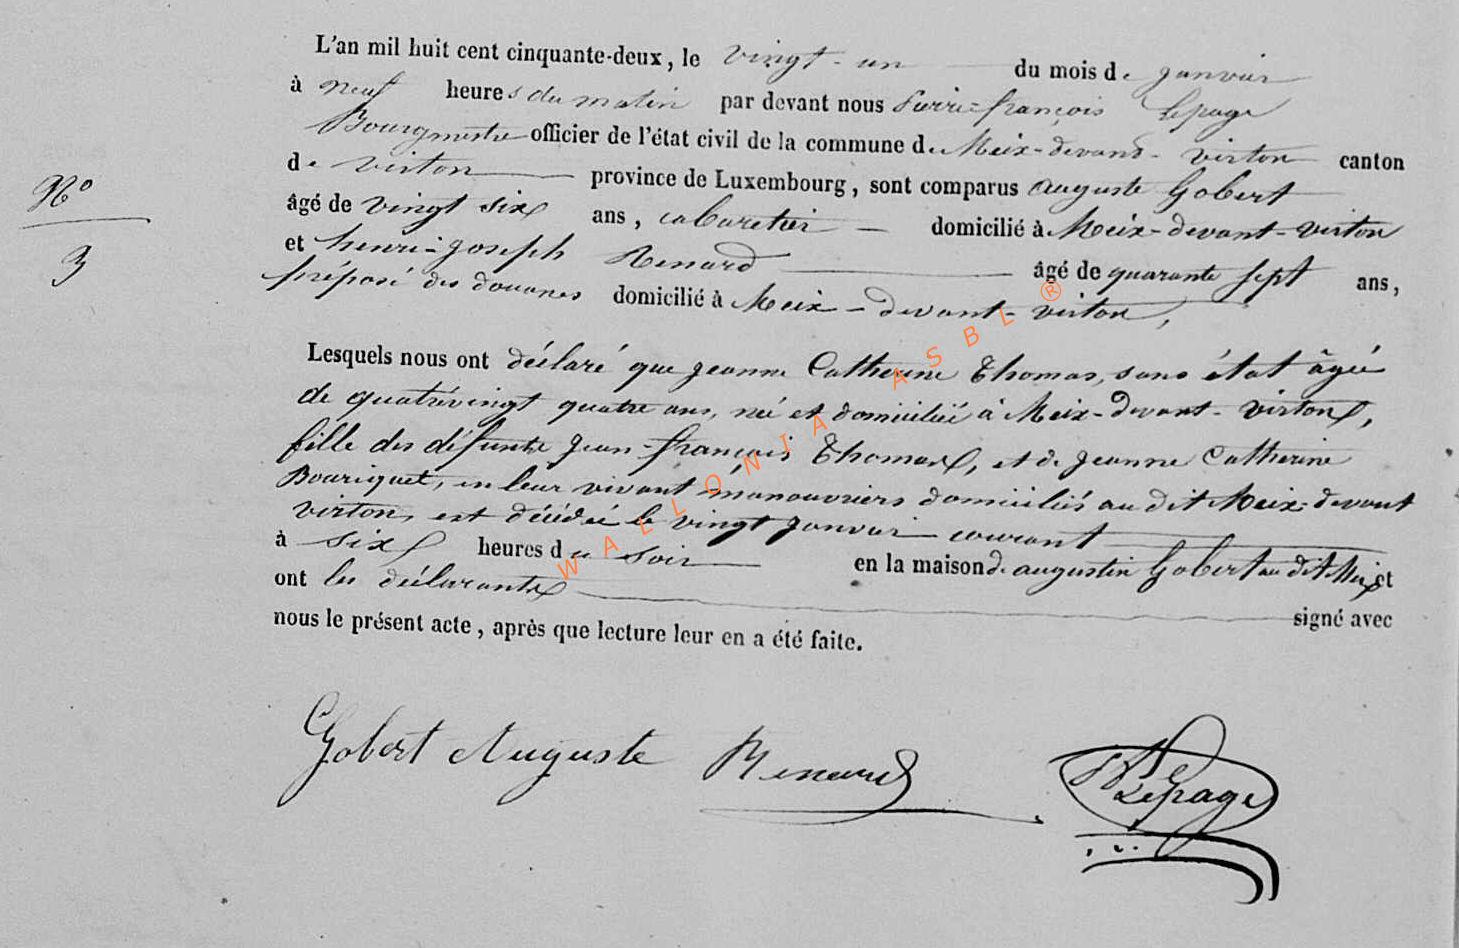 L'an mil huit cent cinquante-deux, le vingt-un du mois de janvier
à neuf heures du matin par devant nous Pierre-françois Lepage
Bourgmestre officier de l'état civil de la commune de Meix-devant-virton canton
de virton province de Luxembourg, sont comparus auguste Gobert
âgé de vingt six ans, cabaretier domicilié à Meix-devant-virton
N°
3
et henri-joseph Renard âgé de quarante sept ans,
préposé des douanes domicilié à Meix-devant-virton,
Lesquels nous ont déclaré que jeanne Catherine Thomas, sans état âgée
de quatrévingt quatre ans, né et domiciliée à Meix-devant-virton,
fille des défunts jean-françois Thomas, et de jeanne Catherine
Bouriquet, en leur vivant manouvriers domiciliés au dit Meix-devant
virton, est décédée le vingt janvier courant
à six heures du soir en la maison d. augustin Gobert au dit Meix et
ont les déclarants signé avec
nous le présent acte, après que lecture leur en a été faite.
Gobert Auguste Renard Lepage
WALLONIA ASBL ®